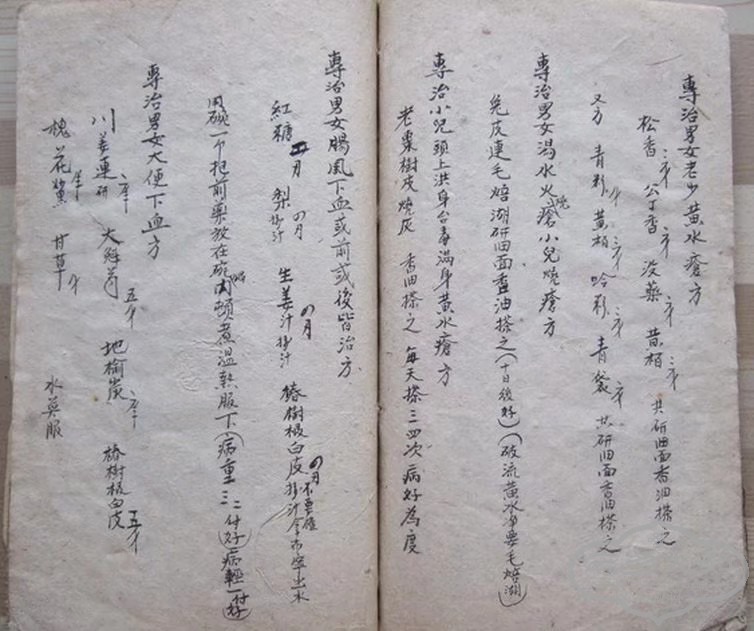 專治男女老少黃水瘡方
松香 二錢 公丁香 二錢 沒藥 二錢 黃栢 二錢 共研細面香油搽之
又方 青粉 黃栢 二錢 吟粉 二錢 青袋 共研細面香油搽之
專治男女湯水火燒瘡小兒燒瘡方
兔皮連毛焙湖研細面香油搽之(十日後好)(破流黃水凈要毛焙湖)
專治小兒頭上洪身台毒滿身黃水瘡方
老棗樹皮燒灰 香油搽之 每天搽三四次 病好為度
專治男女腸風下血或前或後皆治方
紅糖 四月 梨搗汁 四月 生姜汁搗汁 四月 椿樹根白皮搗汁 四月 不要
用碗一个把前藥放在碗內頓煮溫熱服下(病重三二付好)(病輕一付好)
專治男女大便下血方
川羌連研 大鮮 五錢 地榆炭 椿樹根白皮 五錢
槐花 甘草 水煎服